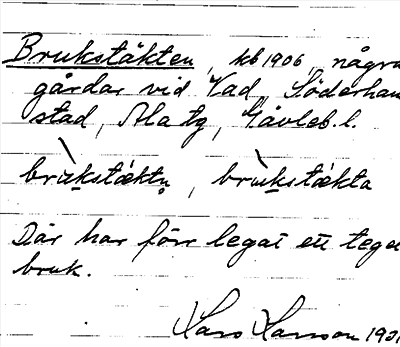 Brukstäkten, kb 1906, några
gårdar vid Vad, Söderham
stad, Ala tg, Gävleb. l.
brùkstæktn̥, brùkstækta
Där har förr legat ett tegel
bruk.
Lars Hanson 19